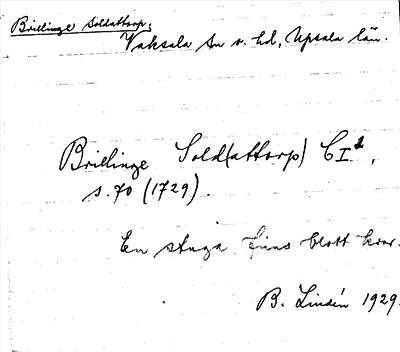 Brillinge Soldattorp.
Vaksala sn o. hd, Upsala län.
Brillinge Sold(attorp) CI¹,
s. 70 (1729).
En stuga finns blott kvar.
B. Lindén 1929.